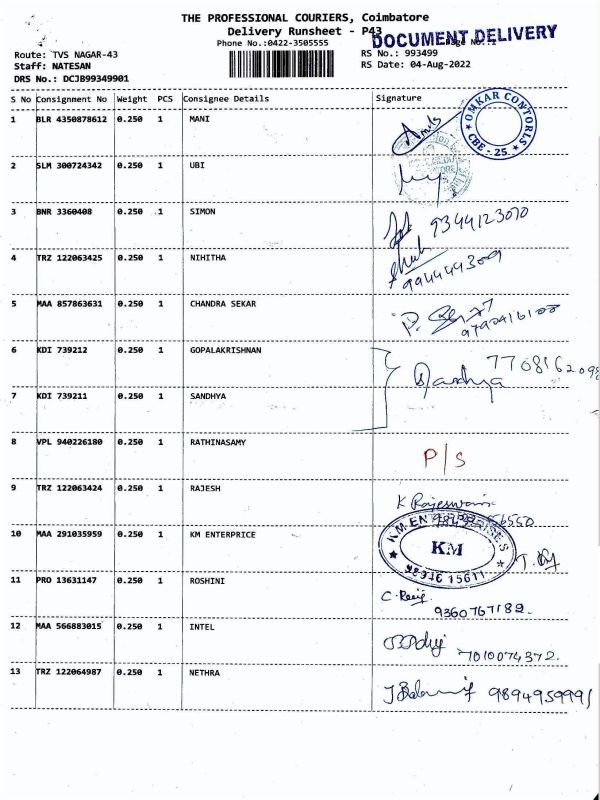 THE PROFESSIONAL COURIERS, Coimbatore
Delivery Runsheet - P43
DOCUMENT DELIVERY
Phone No.:0422-3505555
Page No.:1
Route: TVS NAGAR-43
RS No.: 993499
Staff: NATESAN
RS Date: 04-Aug-2022
DRS No.: DCJB99349901
S No Consignment No Weight PCS Consignee Details Signature
1 BLR 4350878612 0.250 1 MANI
OMKAR CONTORLS CBE - 25
2 SLM 300724342 0.250 1 UBI
3 BNR 3360408 0.250 1 SIMON 9344123070
4 TRZ 122063425 0.250 1 NIHITHA 9944443009
5 MAA 857863631 0.250 1 CHANDRA SEKAR
6 KDI 739212 0.250 1 GOPALAKRISHNAN
Sandhya
7 KDI 739211 0.250 1 SANDHYA
8 VPL 940226180 0.250 1 RATHINASAMY P/S
9 TRZ 122063424 0.250 1 RAJESH K Rajeswari
10 MAA 291035959 0.250 1 KM ENTERPRICE
KM ENTERPRISES KM 98946 15611
11 PRO 13631147 0.250 1 ROSHINI 9360767189
12 MAA 566883015 0.250 1 INTEL 7010074372
13 TRZ 122064987 0.250 1 NETHRA 9894959991